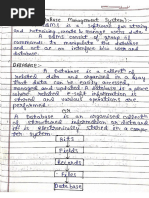 Database Management System):-
DBMS is a software for storing
and retrieving, users & manage users data.
A DBMS consist of group of
commands to manipulate the database
and act as an interface b/w user and
database.
DATABASE:-
A Database is a collectn of
related data and organised in a way
that data can be easily accessed,
managed and updated. A database is a place
where related information is
stored and various operations are
performed.
OR
A Database is an organised collectn
of structured information or data and
it is electronically stored on a computer
system
Bits
↓
Fields
↓
Records
↓
Files
↓
Database